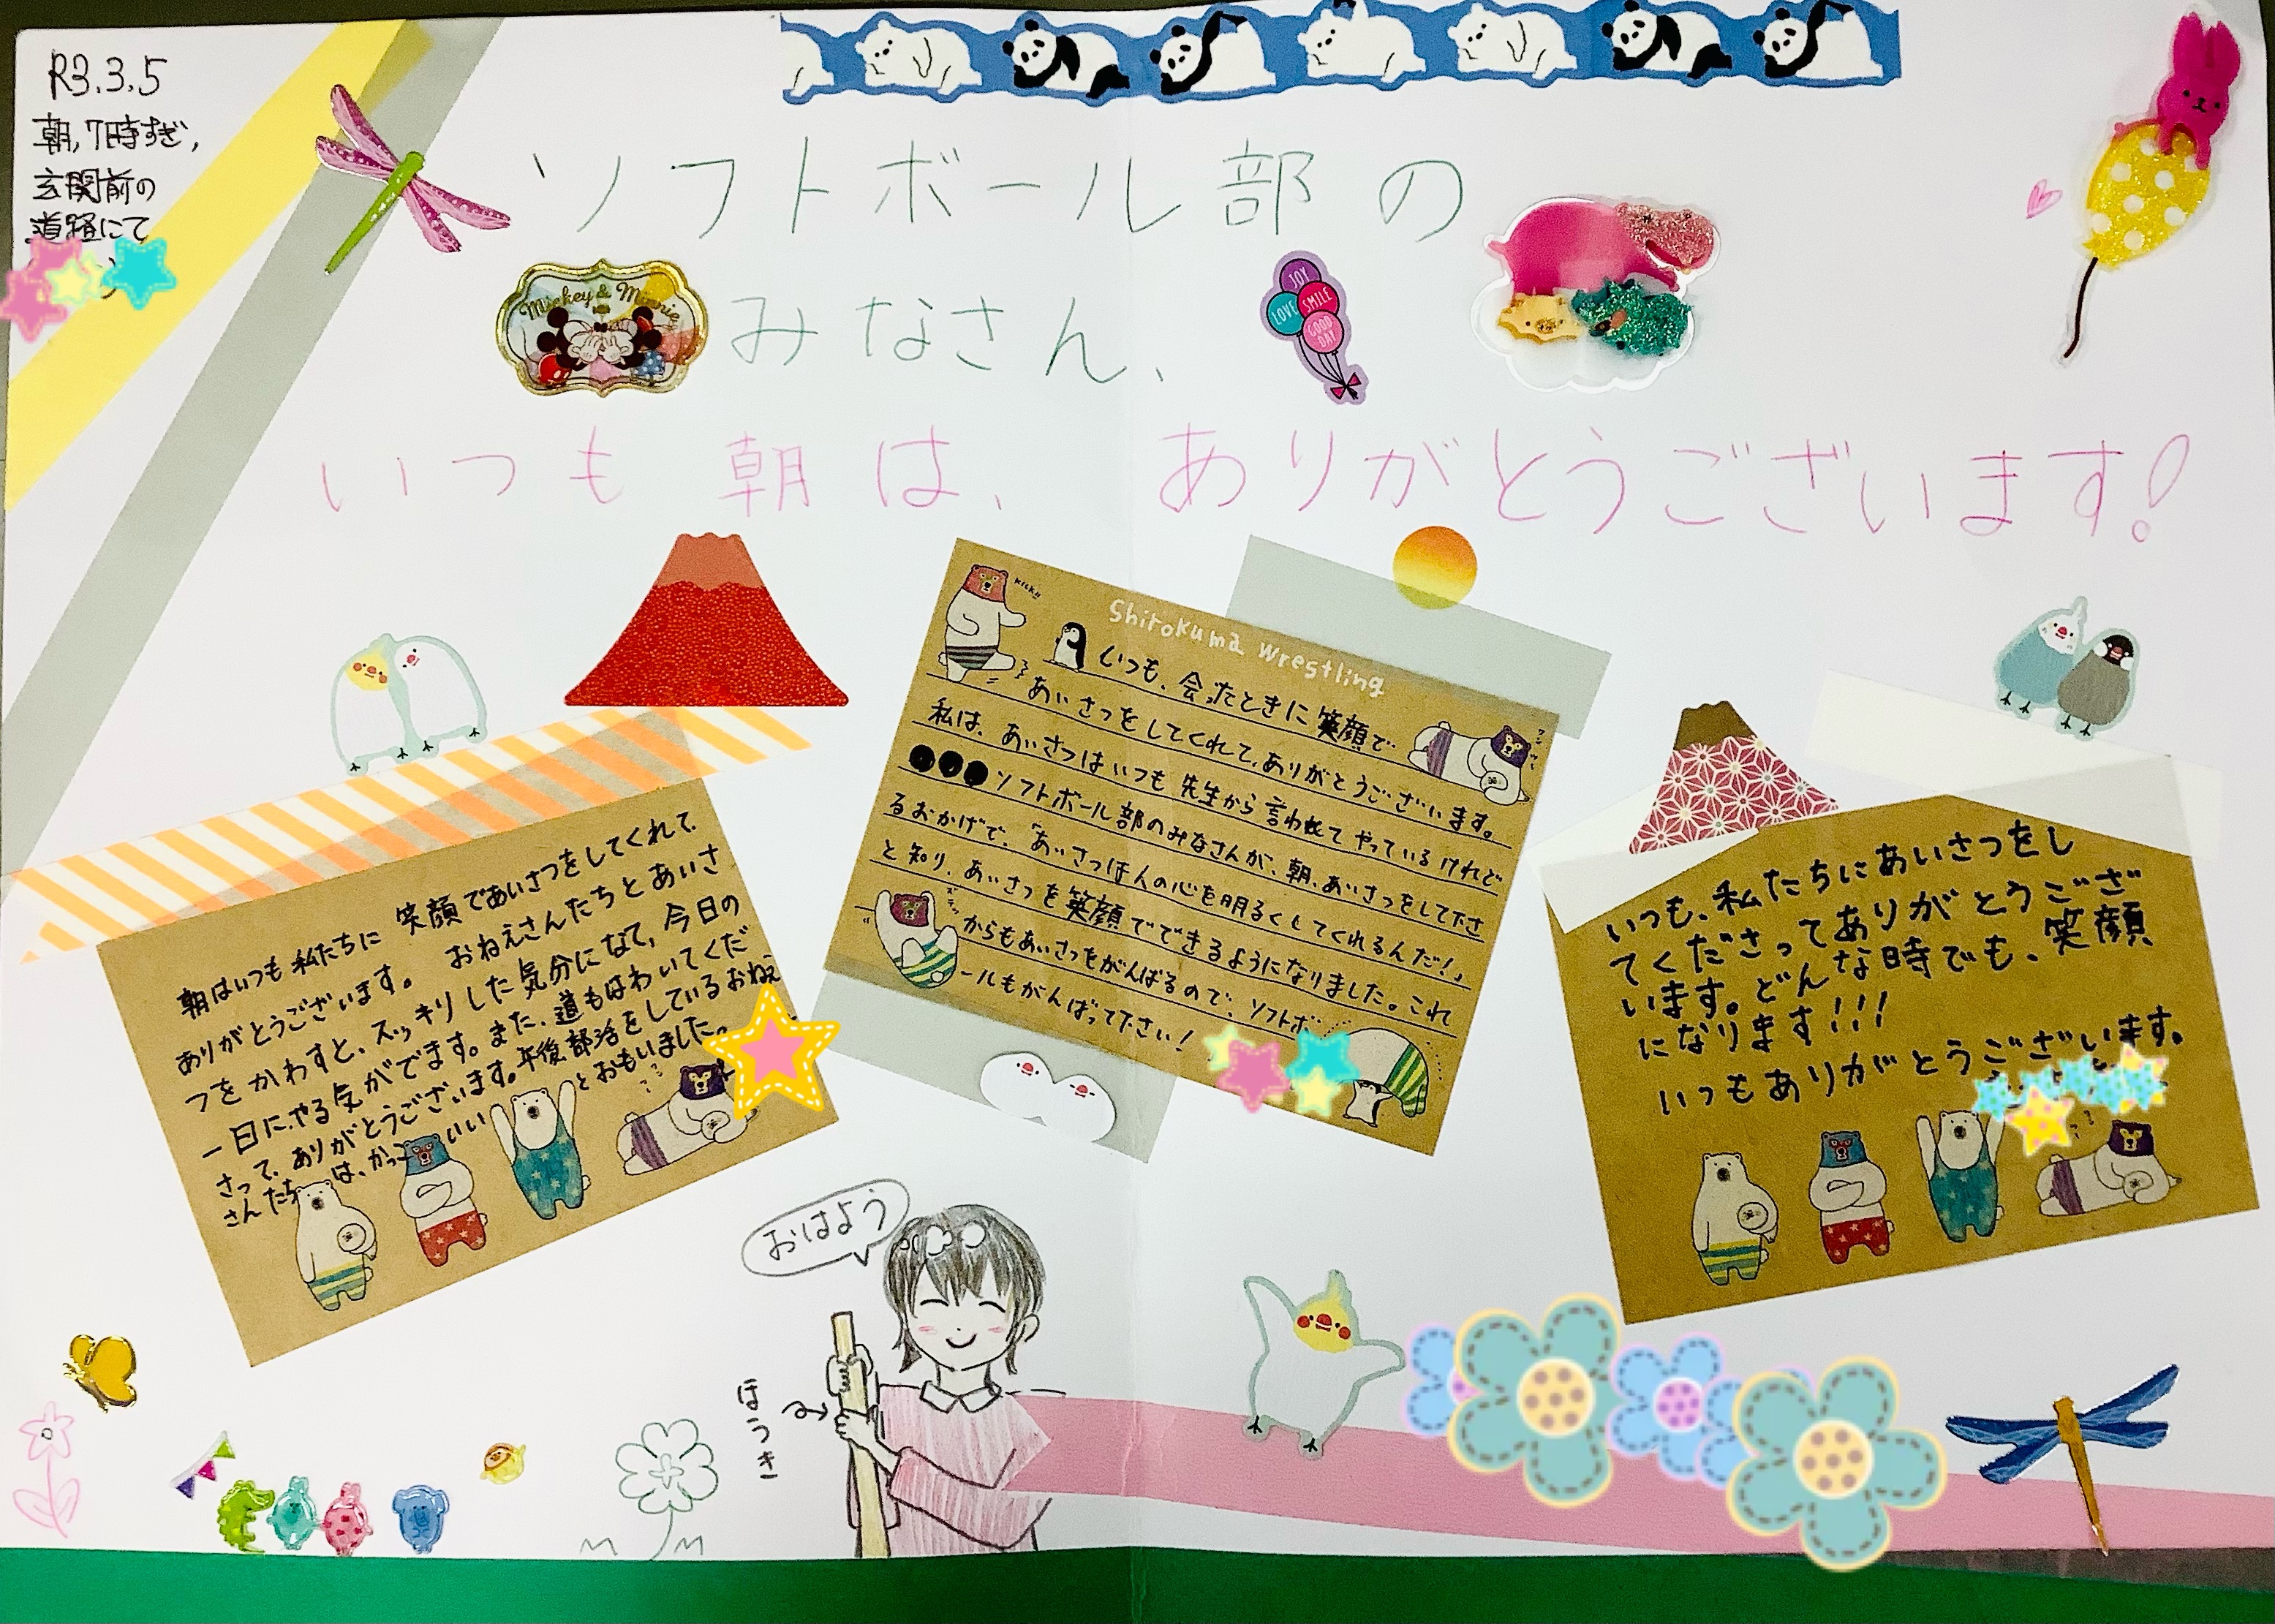 R3.3.5
朝,7時すぎ,
玄関前の
道路にて
ソフトボール部の
Mickey & Minnie
みなさん、
JOY
LOVE
SMILE
GOOD
DAY
いつも朝は、ありがとうございます!
朝はいつも私たちに 笑顔であいさつをしてくれて
ありがとうございます。 おねえさんたちとあいさ
つをかわすと、スッキリした気分になて、今日の
一日に、やる気がでます。また、道もはわいてくだ
さって、ありがとうございます。午後部活をしているおねえ
さんたちは、かっこいいとおもいました。
KICK!!
Shirokuma Wrestling
いつも、会ったときに笑顔で
あいさつをしてくれて、ありがとうございます。
私は、あいさつはいつも先生から言われてやっているけれど
●●●ソフトボール部のみなさんが、朝、あいさつをして下さ
るおかげで、「あいさつは人の心を明るくしてくれるんだ!」
と知り、あいさつを笑顔でできるようになりました。これ
からもあいさつをがんばるので、ソフトボ
ールもがんばって下さい!
いつも、私たちにあいさつをし
てくださってありがとうござ
います。どんな時でも、笑顔
になります!!!
いつもありがとうございます。
おはよう
ほうき